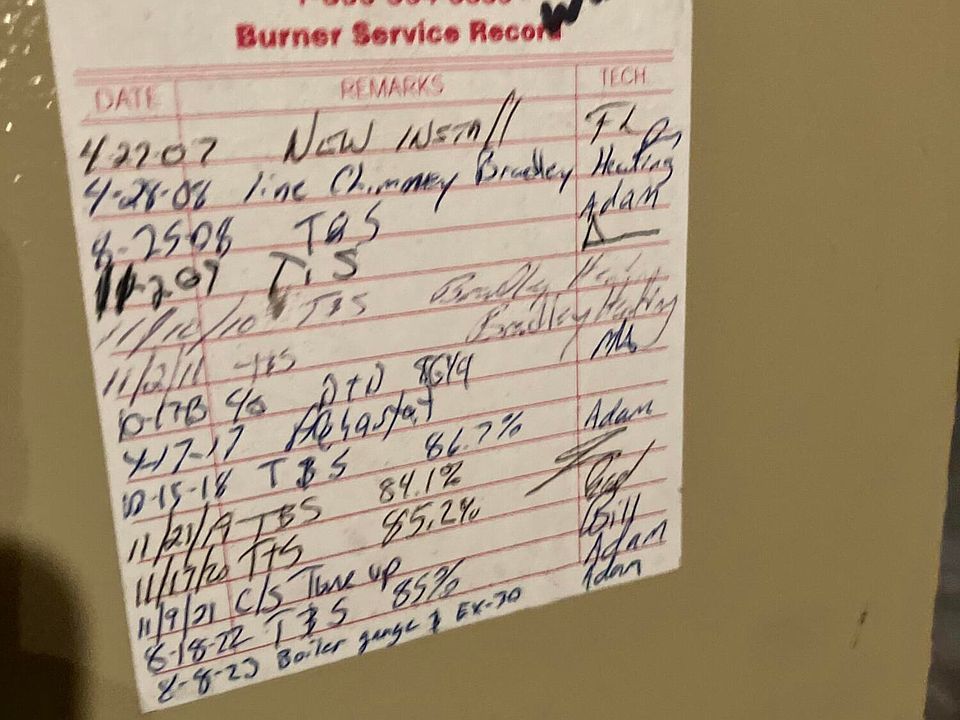 Burner Service Record
DATE REMARKS TECH.
4-27-07 NEW INSTAll FL
4-28-08 line Chimney Bradley Heating
8-25-08 T&S Adam
11-2-09 T&S
11/10/10 T&S Bradley Heating
11/2/11 T&S Bradley Heating
10-17-13
4-17-17 AQUASTAT
10-15-18 T&S 86.7% Adam
11/21/19 T&S 84.1%
11/17/20 T+S 85.2%
11/9/21 C/S Tune up Bill
8-18-22 T&S 85% Adam
8-8-23 Boiler gauge & EX-30 Adam